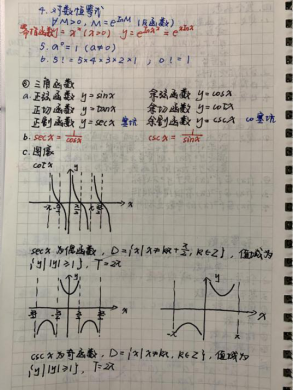 4. 对数恒等式
∀M>0, M = e^lnM (自函数)
幂指函数 y = x^x (x>0) y = e^lnx^x = e^xlnx
5. a⁰ = 1 (a≠0)
6. 5! = 5×4×3×2×1, 0! = 1
③ 三角函数
a. 正弦函数 y = sinx 余弦函数 y = cosx
正切函数 y = tanx 余切函数 y = cotx
正割函数 y = secx 余割函数 y = cscx
b. secx = 1/cosx cscx = 1/sinx
c. 图像
cotx
y
x
secx 为偶函数, D = {x | x ≠ kπ + π/2, k∈Z}, 值域为
{y | |y| ≥ 1}, T = 2π
y
x
y
x
cscx 为奇函数, D = {x | x ≠ kπ, k∈Z}, 值域为
{y | |y| ≥ 1}, T = 2π